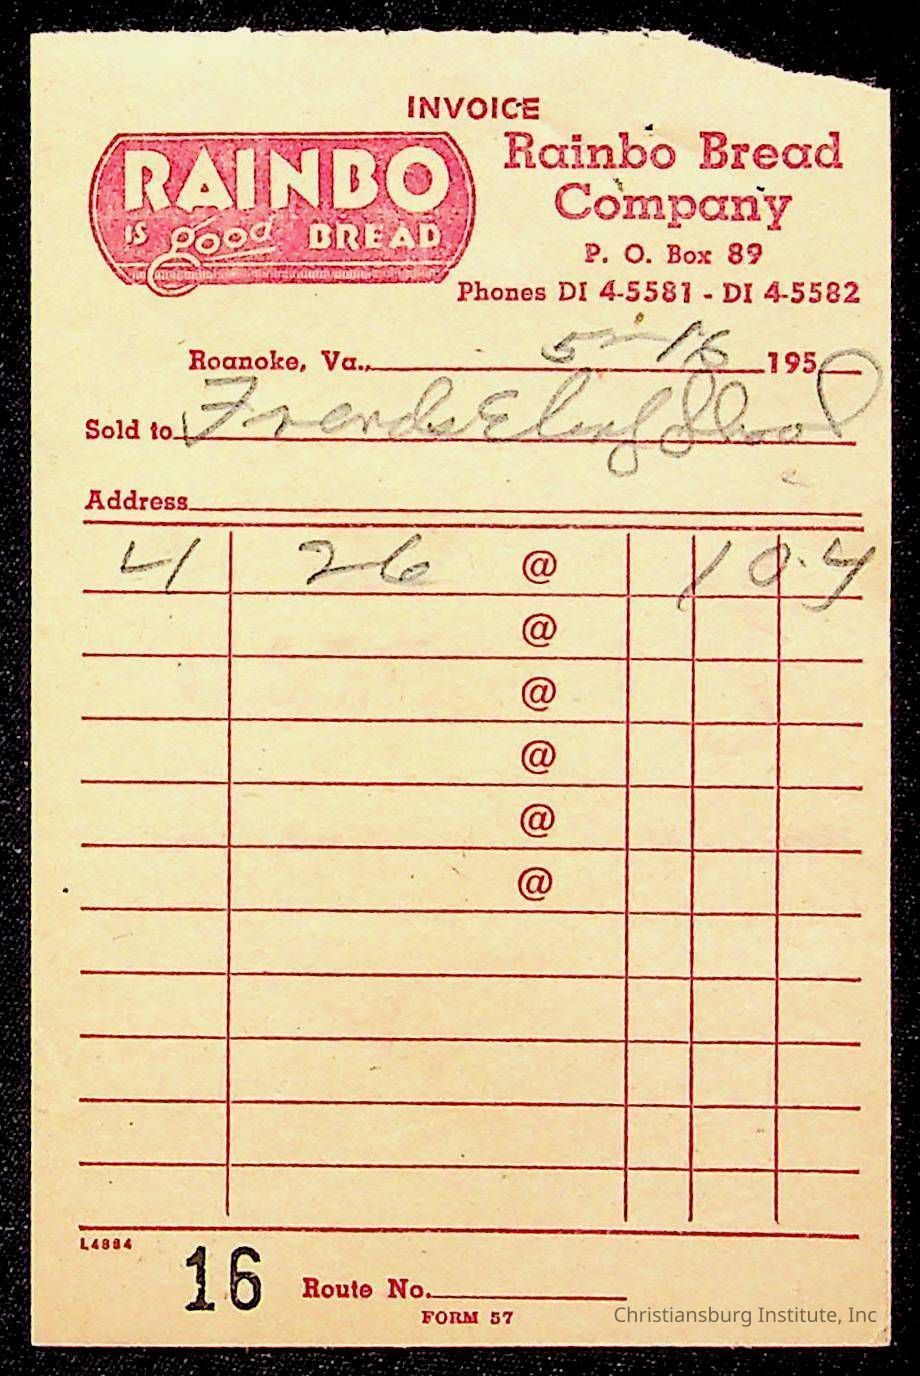 INVOICE
RAINBO
IS good BREAD
Rainbo Bread
Company
P. O. Box 89
Phones DI 4-5581 - DI 4-5582
Roanoke, Va., 5-16 195
Sold to Friends Elem School
Address
4 26 @ 10.4
@
@
@
@
@
L4884
16 Route No.
FORM 57
Christiansburg Institute, Inc